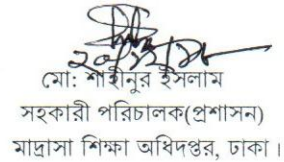 মো: শাহীনুর ইসলাম
সহকারী পরিচালক(প্রশাসন)
মাদ্রাসা শিক্ষা অধিদপ্তর, ঢাকা।